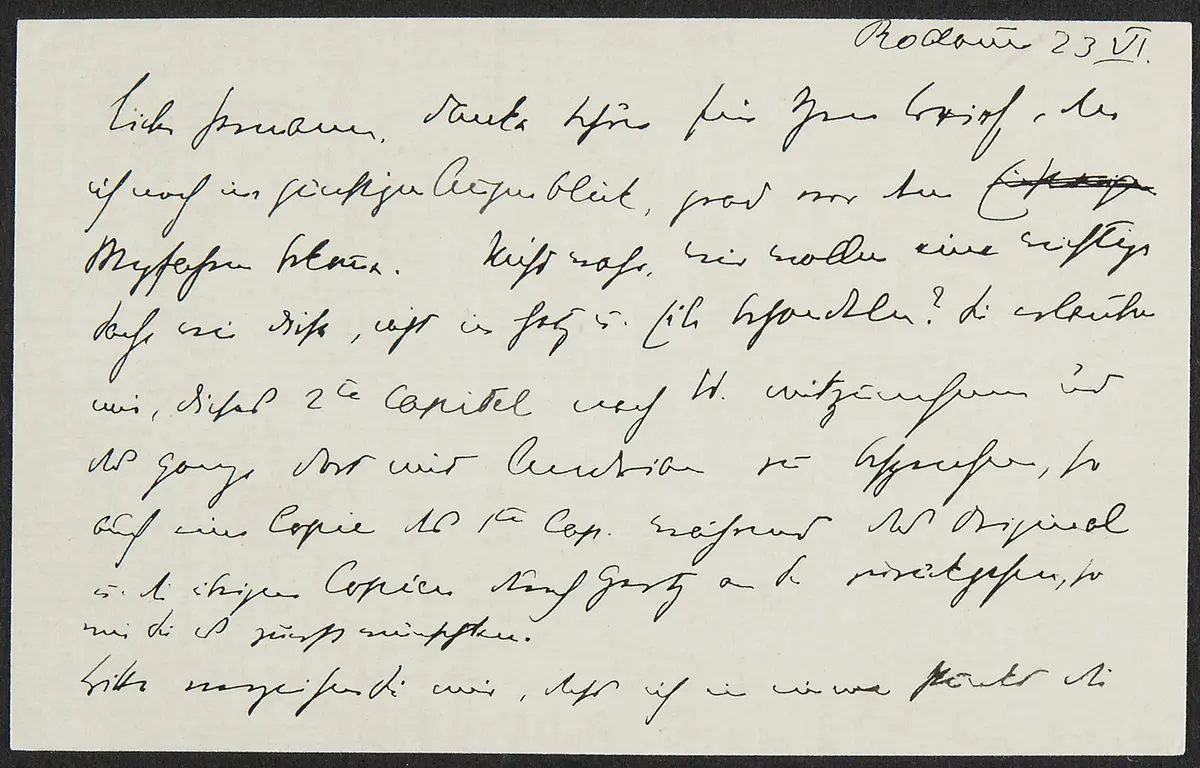 Rodaun 23 VI.
lieber Hermann, danke schön für Ihren Brief, den
ich noch im günstigen Augenblick, grad vor dem
Wegfahren bekam. Nicht wahr, wir wollen eine wichtige
Sache wie diese, nicht in Hatz u. Eile behandeln? Sie erlauben
mir, dieses 2te Capitel nach W. mitzunehmen und
das ganze dort mit Andrian zu besprechen, so
auch eine Copie des 1ten Cap. während das Original
u. die übrigen Copien durch an Sie zurückgehen, so
wie Sie es zuerst wünschten.
bitte verzeihen Sie mir, dass ich in einem Punkt die